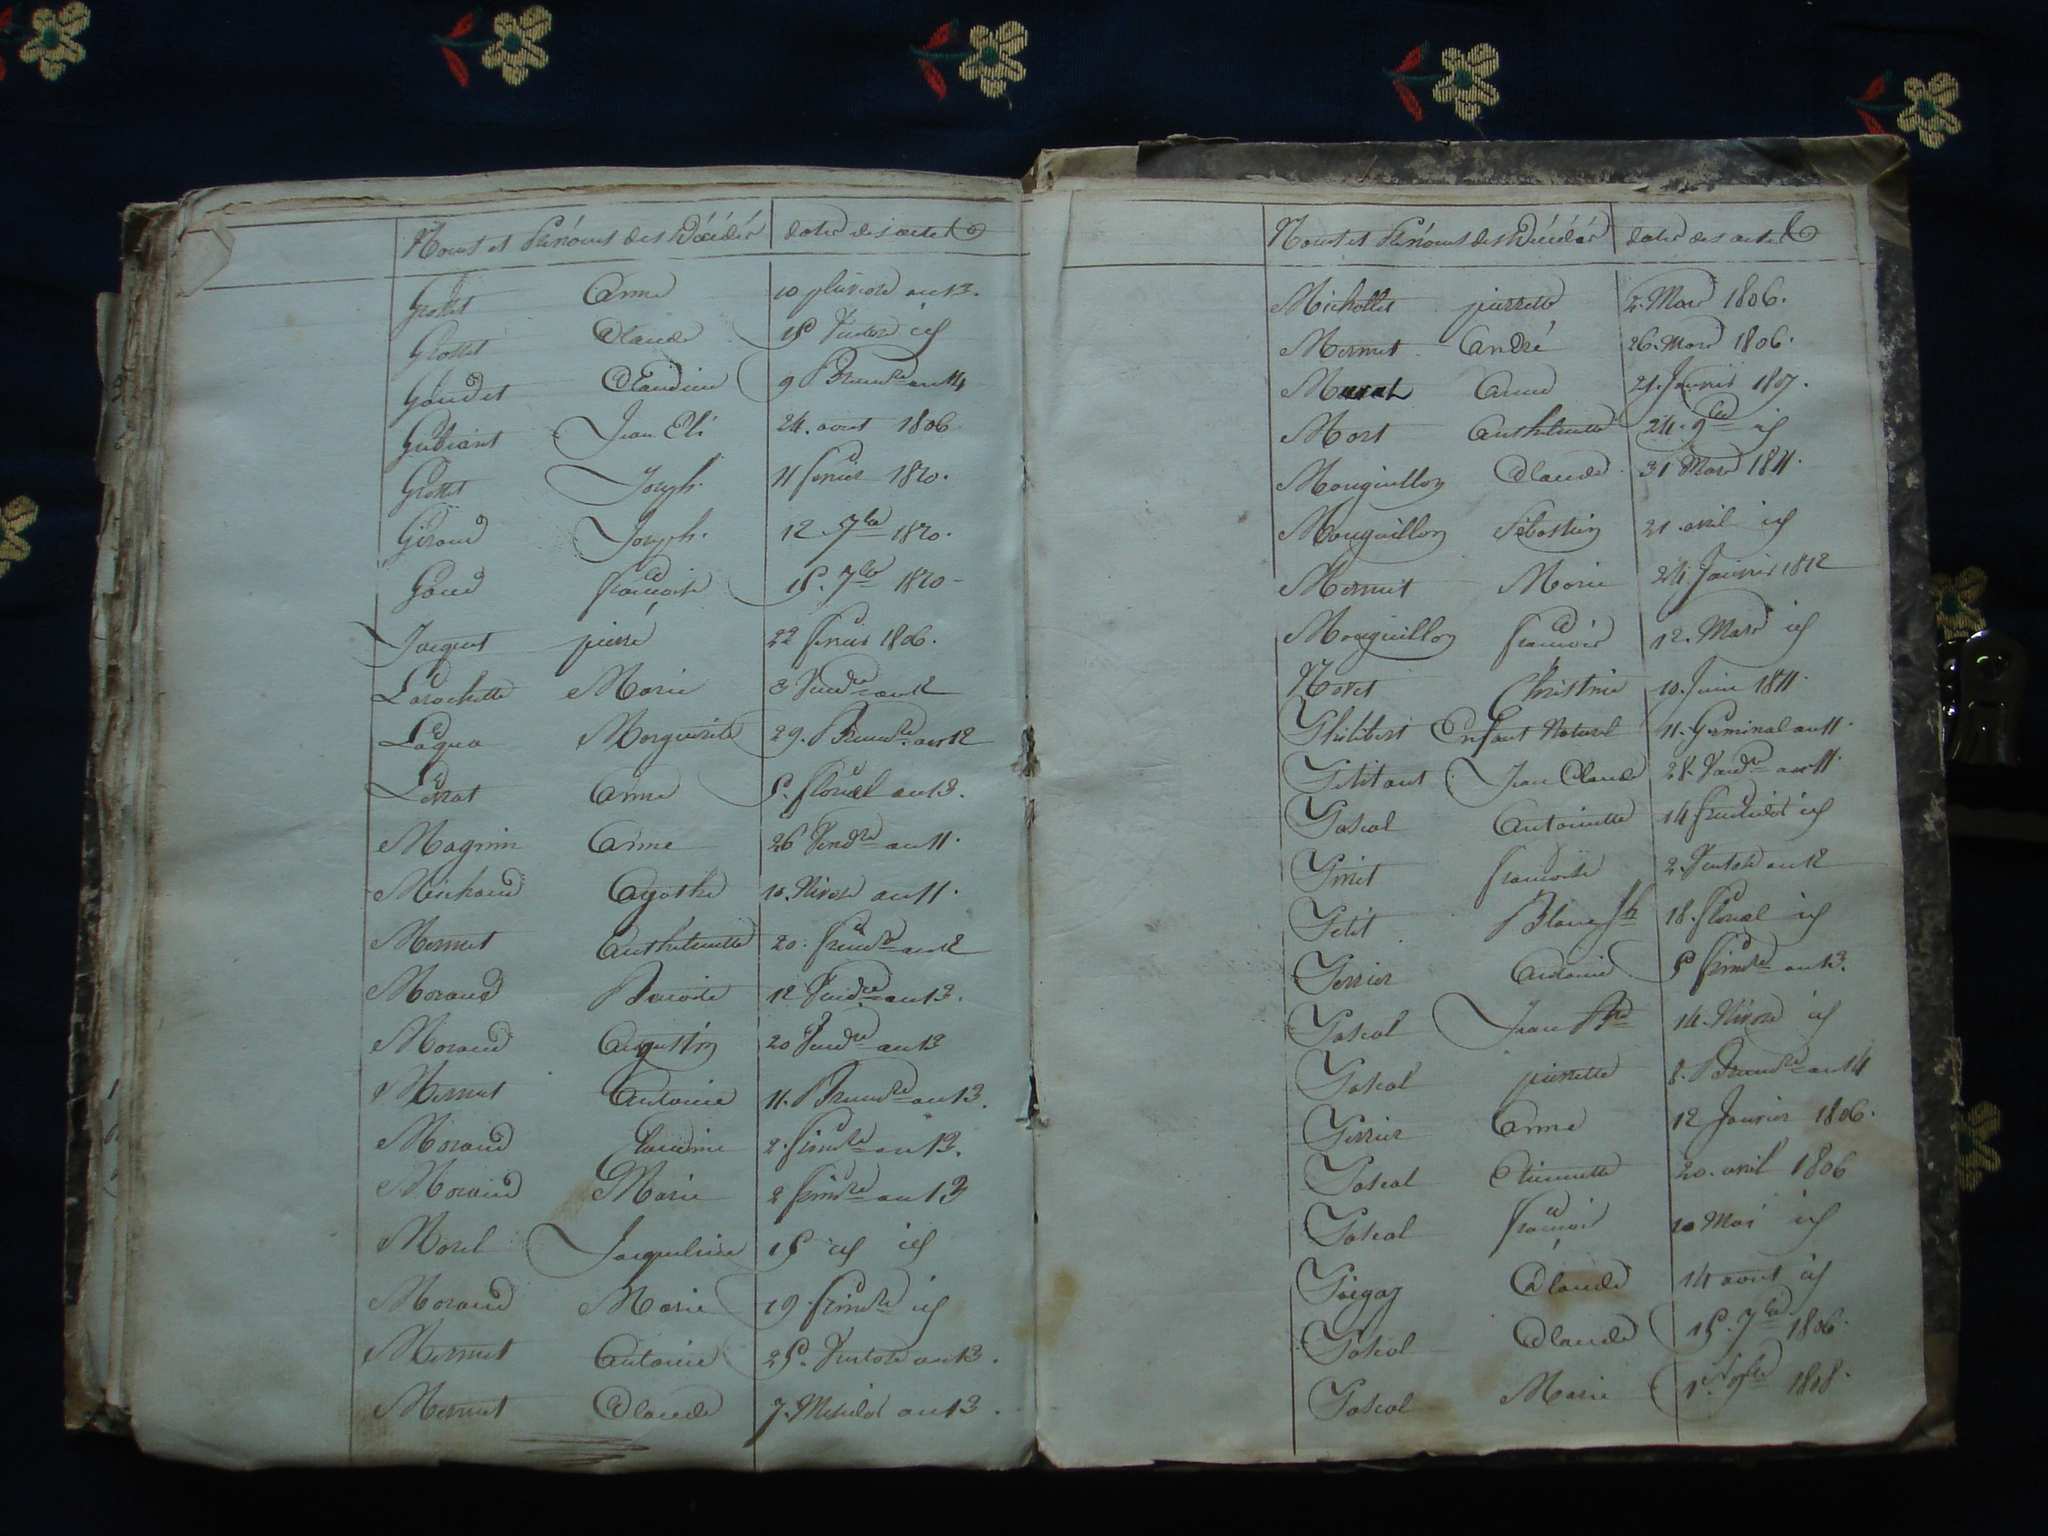 Noms et Prénoms des Décédés dates des actes
Grottet Anne 10 pluviose an 13.
Grottet Claude 15 Ventose id
Goudet Claudine 9 Brumre an 14
Gubiant Jean Eli 24. aout 1806
Grottet Joseph. 11 fevrier 1820.
Giroud Joseph. 12 7bre 1820.
Goud francoise 15. 7bre 1820
Jacquet pierre 22 fevrier 1806.
Larochette Marie 8 Vendre an 12
Laqua Marguerite 29. Brumre an 12
Levrat Anne 5. floreal an 13.
Magnin Anne 26 Vendre an 11.
Michaud Agathe 10. Nivose an 11.
Mermet Anthelmette 20. frimre an 12
Moraud Benoite 12 Vendre an 13.
Moraud Augustin 20 Vendre an 13
Mermet Antoine 11. Brumre an 13.
Moraud Claudine 2. frimre an 13.
Moraud Marie 2 frimre an 13
Morel Jacqueline 15 id id
Moraud Marie 19 frimre id
Mermet Antoine 25. Ventose an 13.
Mermet Claude 7. Messidor an 13.
Noms et Prénoms des Décédés dates des actes
Michollet pierrette 2. Mars 1806.
Mermet André 26. Mars 1806.
Anne 21. Janvier 1807.
Mort Anthelmette 24. 9bre id
Monguillon Claude 31 Mars 1811.
Monguillon Sébastien 21 avril id
Mermet Marie 24. Janvier 1812
Monguillon francois 12. Mars id
Noret Christine 10. Juin 1811.
Philibert Enfant Naturel 11. Germinal an 11.
Petitant Jean Claude 28. Vendre an 11.
Pascal Antoinette 14 fructidor id
Pinet francoise 2. Ventose an 12
Petit Blaise 18. floreal id
Perrier Antoine 5 frimre an 13.
Pascal Jean Bte 14. Nivose id
Pascal pierrette 8. Brumre an 14
Perrier Anne 12 Janvier 1806.
Pascal Etiennette 20. avril 1806
Pascal francois 10 Mai id
Claude 14 aout id
Pascal Claude 15. 7bre 1806.
Pascal Marie 1er 9bre 1808.